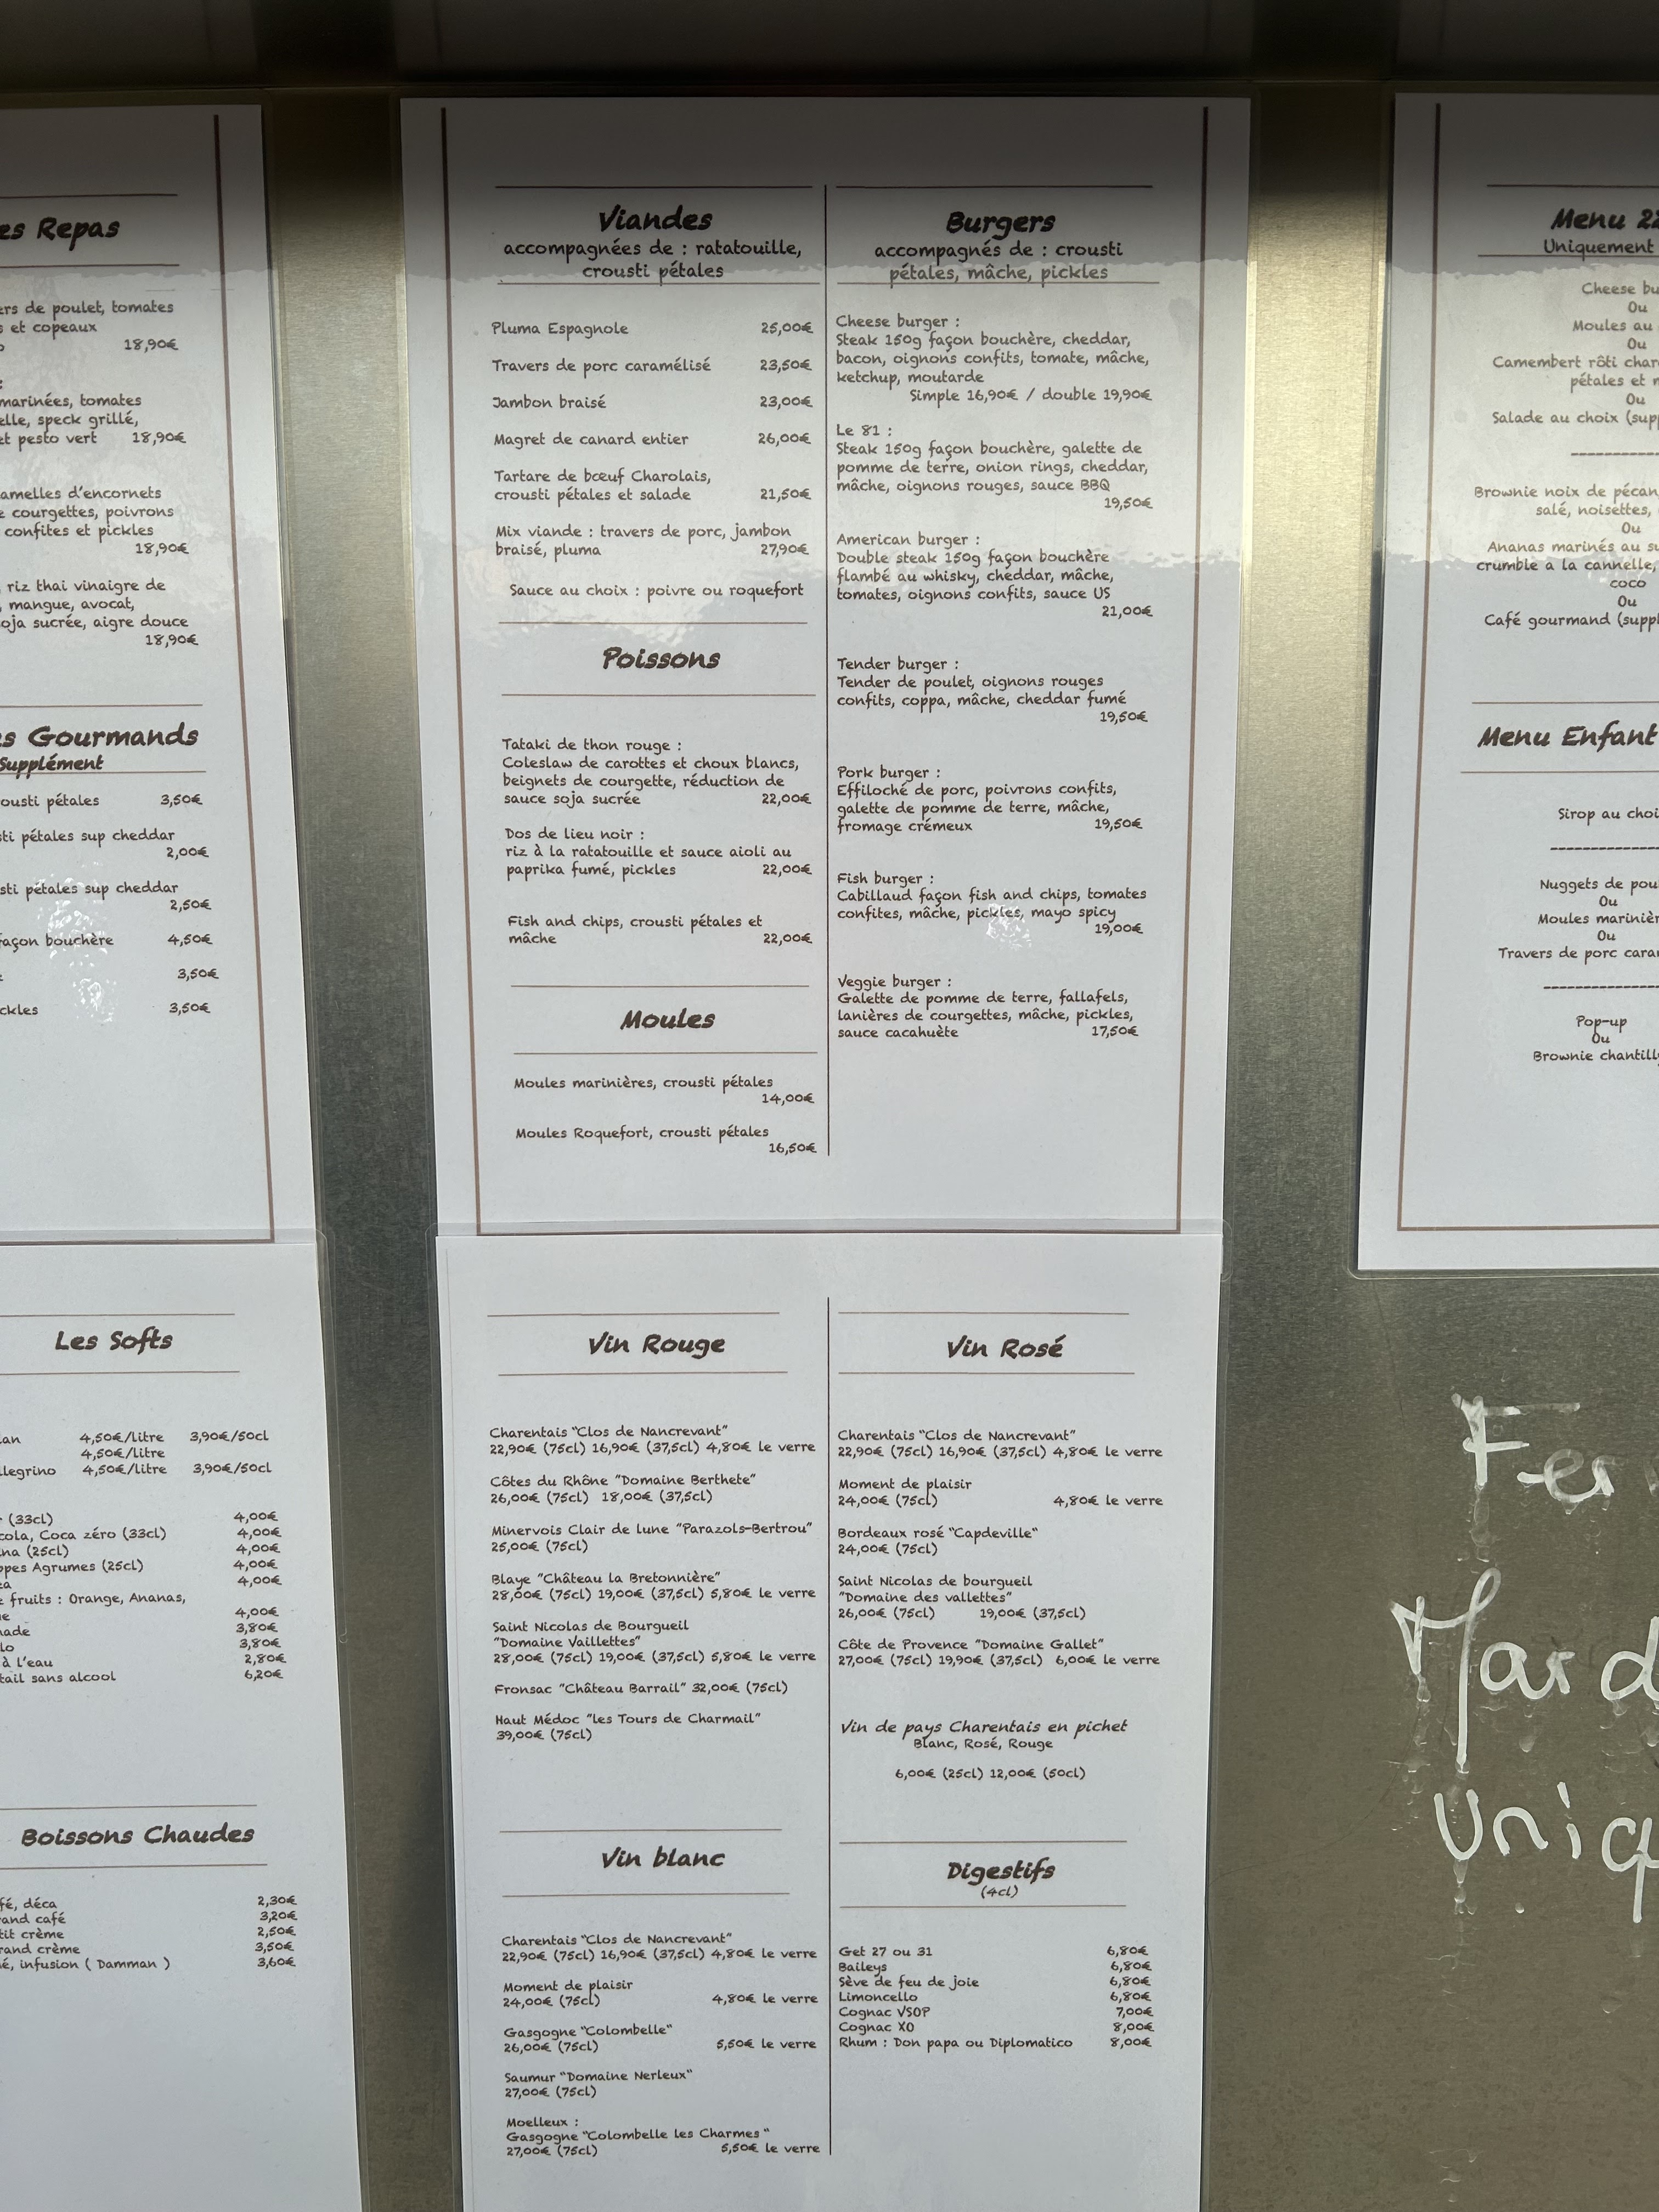 es Repas
ers de poulet, tomates
s et copeaux
o 18,90€
:
marinées, tomates
elle, speck grillé,
et pesto vert 18,90€
amelles d'encornets
e courgettes, poivrons
confites et pickles
18,90€
riz thai vinaigre de
, mangue, avocat,
oja sucrée, aigre douce
18,90€
s Gourmands
Supplément
ousti pétales 3,50€
sti pétales sup cheddar
2,00€
sti pétales sup cheddar
2,50€
façon bouchère 4,50€
3,50€
ckles 3,50€
Viandes
accompagnées de : ratatouille,
crousti pétales
Pluma Espagnole 25,00€
Travers de porc caramélisé 23,50€
Jambon braisé 23,00€
Magret de canard entier 26,00€
Tartare de bœuf Charolais,
crousti pétales et salade 21,50€
Mix viande : travers de porc, jambon
braisé, pluma 27,90€
Sauce au choix : poivre ou roquefort
Poissons
Tataki de thon rouge :
Coleslaw de carottes et choux blancs,
beignets de courgette, réduction de
sauce soja sucrée 22,00€
Dos de lieu noir :
riz à la ratatouille et sauce aioli au
paprika fumé, pickles 22,00€
Fish and chips, crousti pétales et
mâche 22,00€
Moules
Moules marinières, crousti pétales
14,00€
Moules Roquefort, crousti pétales
16,50€
Burgers
accompagnés de : crousti
pétales, mâche, pickles
Cheese burger :
Steak 150g façon bouchère, cheddar,
bacon, oignons confits, tomate, mâche,
ketchup, moutarde
Simple 16,90€ / double 19,90€
Le 81 :
Steak 150g façon bouchère, galette de
pomme de terre, onion rings, cheddar,
mâche, oignons rouges, sauce BBQ
19,50€
American burger :
Double steak 150g façon bouchère
flambé au whisky, cheddar, mâche,
tomates, oignons confits, sauce US
21,00€
Tender burger :
Tender de poulet, oignons rouges
confits, coppa, mâche, cheddar fumé
19,50€
Pork burger :
Effiloché de porc, poivrons confits,
galette de pomme de terre, mâche,
fromage crémeux 19,50€
Fish burger :
Cabillaud façon fish and chips, tomates
confites, mâche, pickles, mayo spicy
19,00€
Veggie burger :
Galette de pomme de terre, fallafels,
lanières de courgettes, mâche, pickles,
sauce cacahuète 17,50€
Menu 22
Uniquement
Cheese bu
Ou
Moules au
Ou
Camembert rôti char
pétales et m
Ou
Salade au choix (supp
--------------
Brownie noix de pécan,
salé, noisettes,
Ou
Ananas marinés au su
crumble à la cannelle,
coco
Ou
Café gourmand (suppl
Menu Enfant
Sirop au choi
--------------
Nuggets de pou
Ou
Moules marinièr
Ou
Travers de porc cara
--------------
Pop-up
Ou
Brownie chantilly
Les Softs
ian 4,50€/litre 3,90€/50cl
4,50€/litre
llegrino 4,50€/litre 3,90€/50cl
(33cl) 4,00€
cola, Coca zéro (33cl) 4,00€
ina (25cl) 4,00€
ppes Agrumes (25cl) 4,00€
ea 4,00€
e fruits : Orange, Ananas,
e 4,00€
nade 3,80€
lo 3,80€
à l'eau 2,80€
tail sans alcool 6,20€
Boissons Chaudes
fé, déca 2,30€
rand café 3,20€
tit crème 2,50€
rand crème 3,50€
é, infusion ( Damman ) 3,60€
Vin Rouge
Charentais "Clos de Nancrevant"
22,90€ (75cl) 16,90€ (37,5cl) 4,80€ le verre
Côtes du Rhône "Domaine Berthete"
26,00€ (75cl) 18,00€ (37,5cl)
Minervois Clair de lune "Parazols-Bertrou"
25,00€ (75cl)
Blaye "Château la Bretonnière"
28,00€ (75cl) 19,00€ (37,5cl) 5,80€ le verre
Saint Nicolas de Bourgueil
"Domaine Vaillettes"
28,00€ (75cl) 19,00€ (37,5cl) 5,80€ le verre
Fronsac "Château Barrail" 32,00€ (75cl)
Haut Médoc "les Tours de Charmail"
39,00€ (75cl)
Vin blanc
Charentais "Clos de Nancrevant"
22,90€ (75cl) 16,90€ (37,5cl) 4,80€ le verre
Moment de plaisir
24,00€ (75cl) 4,80€ le verre
Gasgogne "Colombelle"
26,00€ (75cl) 5,50€ le verre
Saumur "Domaine Nerleux"
27,00€ (75cl)
Moelleux :
Gasgogne "Colombelle les Charmes "
27,00€ (75cl) 5,50€ le verre
Vin Rosé
Charentais "Clos de Nancrevant"
22,90€ (75cl) 16,90€ (37,5cl) 4,80€ le verre
Moment de plaisir
24,00€ (75cl) 4,80€ le verre
Bordeaux rosé "Capdeville"
24,00€ (75cl)
Saint Nicolas de bourgueil
"Domaine des vallettes"
26,00€ (75cl) 19,00€ (37,5cl)
Côte de Provence "Domaine Gallet"
27,00€ (75cl) 19,90€ (37,5cl) 6,00€ le verre
Vin de pays Charentais en pichet
Blanc, Rosé, Rouge
6,00€ (25cl) 12,00€ (50cl)
Digestifs
(4cl)
Get 27 ou 31 6,80€
Baileys 6,80€
Sève de feu de joie 6,80€
Limoncello 6,80€
Cognac VSOP 7,00€
Cognac XO 8,00€
Rhum : Don papa ou Diplomatico 8,00€
Fer
Mard
Uniq